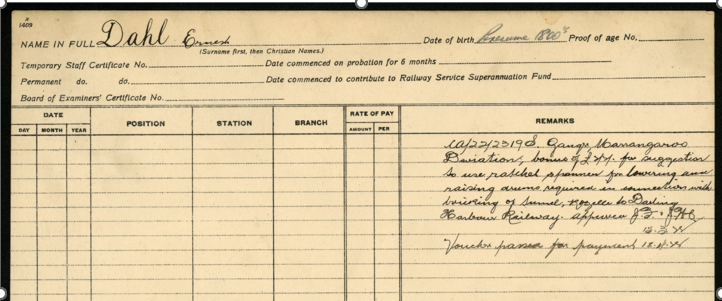 1409
NAME IN FULL Dahl Ernest Date of birth Presume 1890's Proof of age No.
(Surname first, then Christian Names.)
Temporary Staff Certificate No. Date commenced on probation for 6 months
Permanent do. do. Date commenced to contribute to Railway Service Superannuation Fund
Board of Examiners' Certificate No.
DATE POSITION STATION BRANCH RATE OF PAY REMARKS
DAY MONTH YEAR AMOUNT PER
Ganger,
Deviation, bonus of for suggestion
to use ratchet spanner for lowering and
raising drums required in connection with
bricking of tunnel, Rozelle to Darling
Harbour Railway. approved
Voucher passed for payment